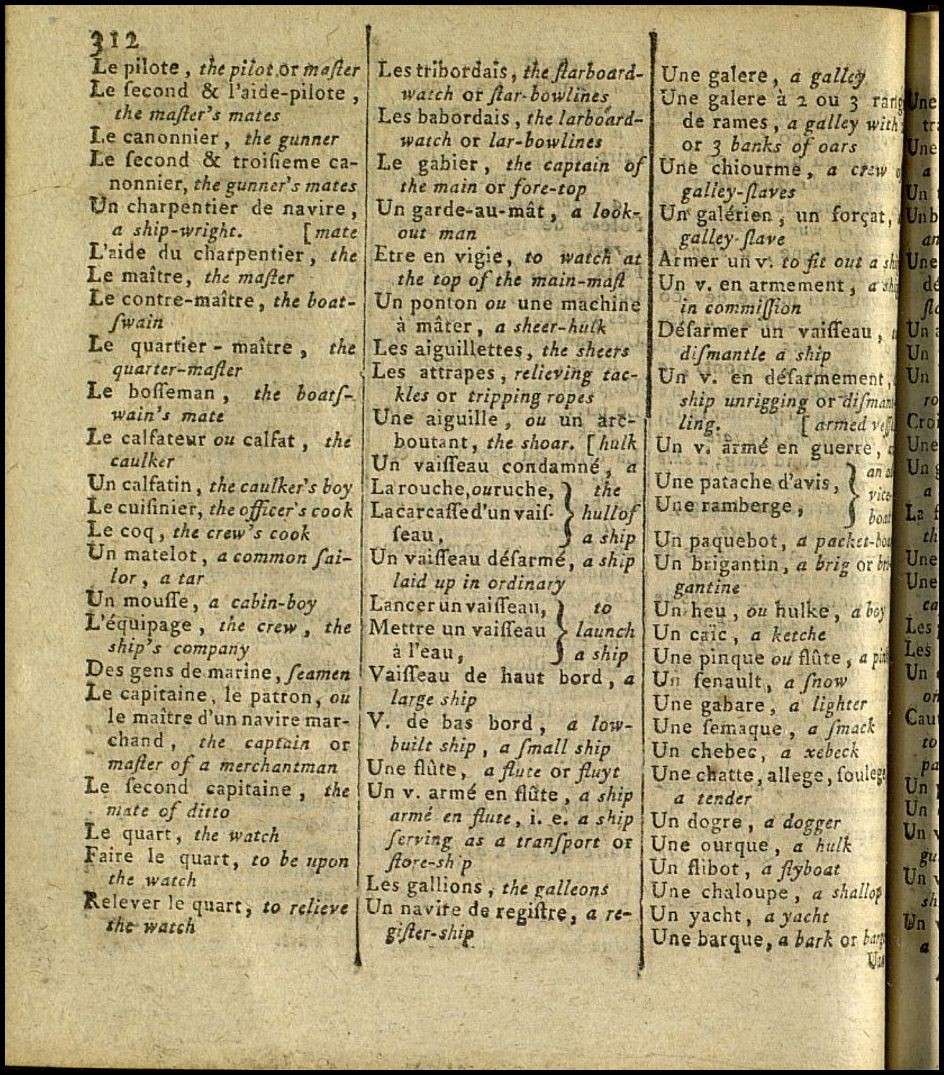 312
Le pilote, the pilot or maſter
Le ſecond & l'aide-pilote,
the maſter's mates
Le canonnier, the gunner
Le ſecond & troiſieme ca-
nonnier, the gunner's mates
Un charpentier de navire,
a ship-wright. [mate
L'aide du charpentier, the
Le maître, the maſter
Le contre-maître, the boat-
ſwain
Le quartier-maître, the
quarter-maſter
Le boſſeman, the boatſ-
wain's mate
Le calfateur ou calfat, the
caulker
Un calfatin, the caulker's boy
Le cuiſinier, the officer's cook
Le coq, the crew's cook
Un matelot, a common ſai-
lor, a tar
Un mouſſe, a cabin-boy
L'équipage, the crew, the
ship's company
Des gens de marine, ſeamen
Le capitaine, le patron, ou
le maître d'un navire mar-
chand, the captain or
maſter of a merchantman
Le ſecond capitaine, the
mate of ditto
Le quart, the watch
Faire le quart, to be upon
the watch
Relever le quart, to relieve
the watch
Les tribordais, the ſtarboard-
watch or ſtar-bowlines
Les babordais, the larboard-
watch or lar-bowlines
Le gabier, the captain of
the main or fore-top
Un garde-au-mât, a look-
out man
Etre en vigie, to watch at
the top of the main-maſt
Un ponton ou une machine
à mâter, a sheer-hulk
Les aiguillettes, the sheers
Les attrapes, relieving tac-
kles or tripping ropes
Une aiguille, ou un arc-
boutant, the shoar. [hulk
Un vaiſſeau condamné, a
La rouche, ou ruche, } the
La carcaſſe d'un vaiſ- } hull of
ſeau, } a ship
Un vaiſſeau déſarmé, a ship
laid up in ordinary
Lancer un vaiſſeau, } to
Mettre un vaiſſeau } launch
à l'eau, } a ship
Vaiſſeau de haut bord, a
large ship
V. de bas bord, a low-
built ship, a ſmall ship
Une flûte, a flute or fluyt
Un v. armé en flûte, a ship
armé en flute, i. e. a ship
ſerving as a tranſport or
ſtore-ship
Les gallions, the galleons
Un navire de regiſtre, a re-
giſter-ship
Une galere, a galley
Une galere à 2 ou 3 rang
de rames, a galley with
or 3 banks of oars
Une chiourme, a crew
galley-ſlaves
Un galérien, un forçat,
galley-ſlave
Armer un v. to fit out a
Un v. en armement, a
in commiſſion
Déſarmer un vaiſſeau,
diſmantle a ship
Un v. en déſarmement,
ship unrigging or
ling. [armed
Un v. armé en guerre,
Une patache d'avis, } an
Une ramberge, } vice
boat
Un paquebot, a
Un brigantin, a brig or
gantine
Un heu, ou hulke, a
Un caïc, a ketche
Une pinque ou flûte, a
Un ſenault, a ſnow
Une gabare, a lighter
Une ſemaque, a ſmack
Un chebec, a xebeck
Une chatte, allege, ſoulege
a tender
Un dogre, a dogger
Une ourque, a hulk
Un flibot, a flyboat
Une chaloupe, a shallop
Un yacht, a yacht
Une barque, a bark or